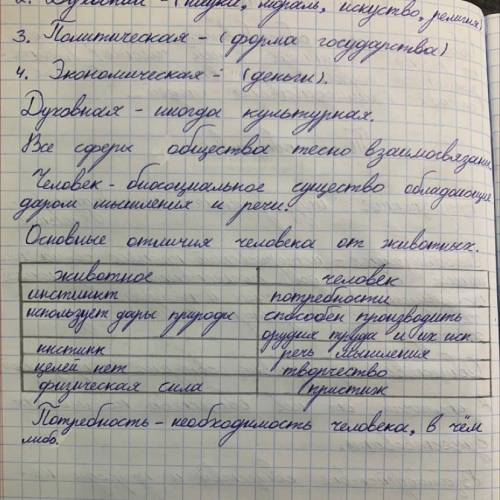 2. Духовная - (наука, мораль, искуство, религия)
3. Политическая - (форма государства)
4. Экономическая - (деньги).
Духовная - иногда культурная.
Все сферы общества тесно взаимосвязаны
Человек - биосоциальное существо обладающие
даром мышления и речи.
Основные отличия человека от животных.
животное человек
инстинкт потребности
использует дары природы способен производить
орудия труда и их исп...
инстинк речь мышления
целей нет творчество
физическая сила пристиж
Потребность - необходимость человека, в чём
либо.